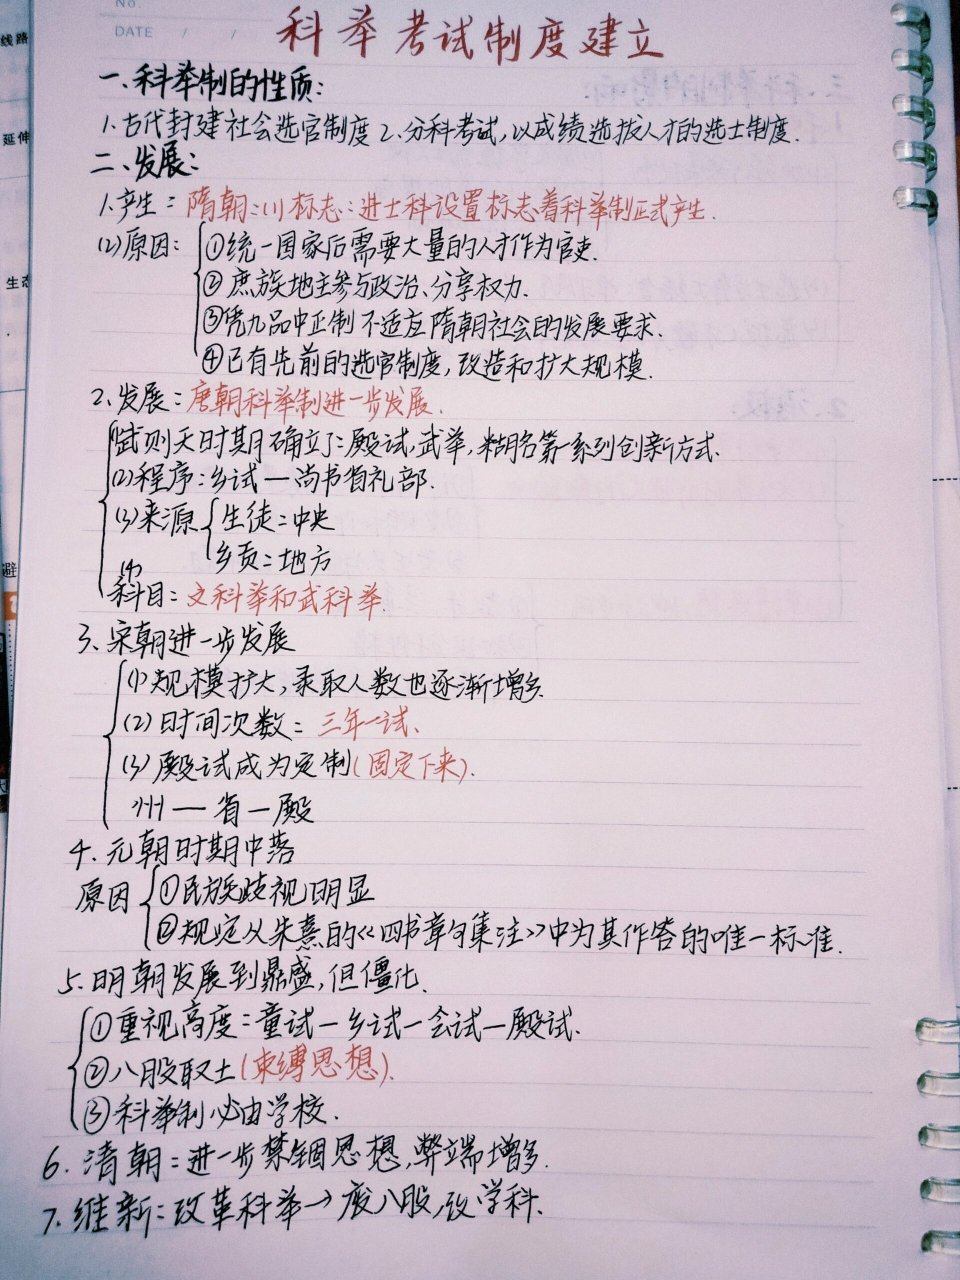 No.
DATE / /
科举考试制度建立
线路
延伸
生态
避
一、科举制的性质:
1.古代封建社会选官制度 2.分科考试,以成绩选拔人才的选士制度.
二、发展:
1.产生:隋朝:(1)标志:进士科设置标志着科举制正式产生.
(2)原因:①统一国家后需要大量的人才作为官吏.
②庶族地主参与政治、分享权力.
③凭九品中正制不适应隋朝社会的发展要求.
④已有先前的选官制度,改造和扩大规模.
2.发展:唐朝科举制进一步发展.
(1)武则天时期确立了:殿试,武举,糊名第一系列创新方式.
(2)程序:乡试—尚书省礼部.
(3)来源 生徒:中央
乡贡:地方
(4)
科目:文科举和武科举.
3.宋朝进一步发展
(1)规模扩大,录取人数也逐渐增多.
(2)时间次数:三年一试.
(3)殿试成为定制(固定下来).
州—省—殿
4.元朝时期中落
原因 ①民族歧视明显
②规定以朱熹的《四书章句集注》中为其作答的唯一标准.
5.明朝发展到鼎盛,但僵化.
①重视高度:童试—乡试—会试—殿试.
②八股取士(束缚思想).
③科举制必由学校.
6.清朝:进一步禁锢思想,弊端增多.
7.维新:改革科举→废八股,改学科.